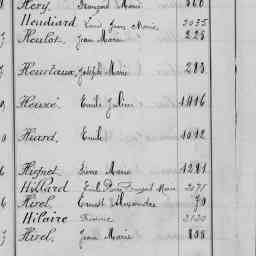 Héry, Français Marie 866
Heudiard Jean Marie 2035
Heulot Jean Marie 228
Heurtaux, Joseph Marie 213
Heuzé, Emile Julien 1416
Hiard, Emile 1012
Hignet Pierre Marie 1281
Hillard Marie 2071
Hirel Ernest Alexandre 70
Hilaire 2120
Hirel, Jean Marie 808